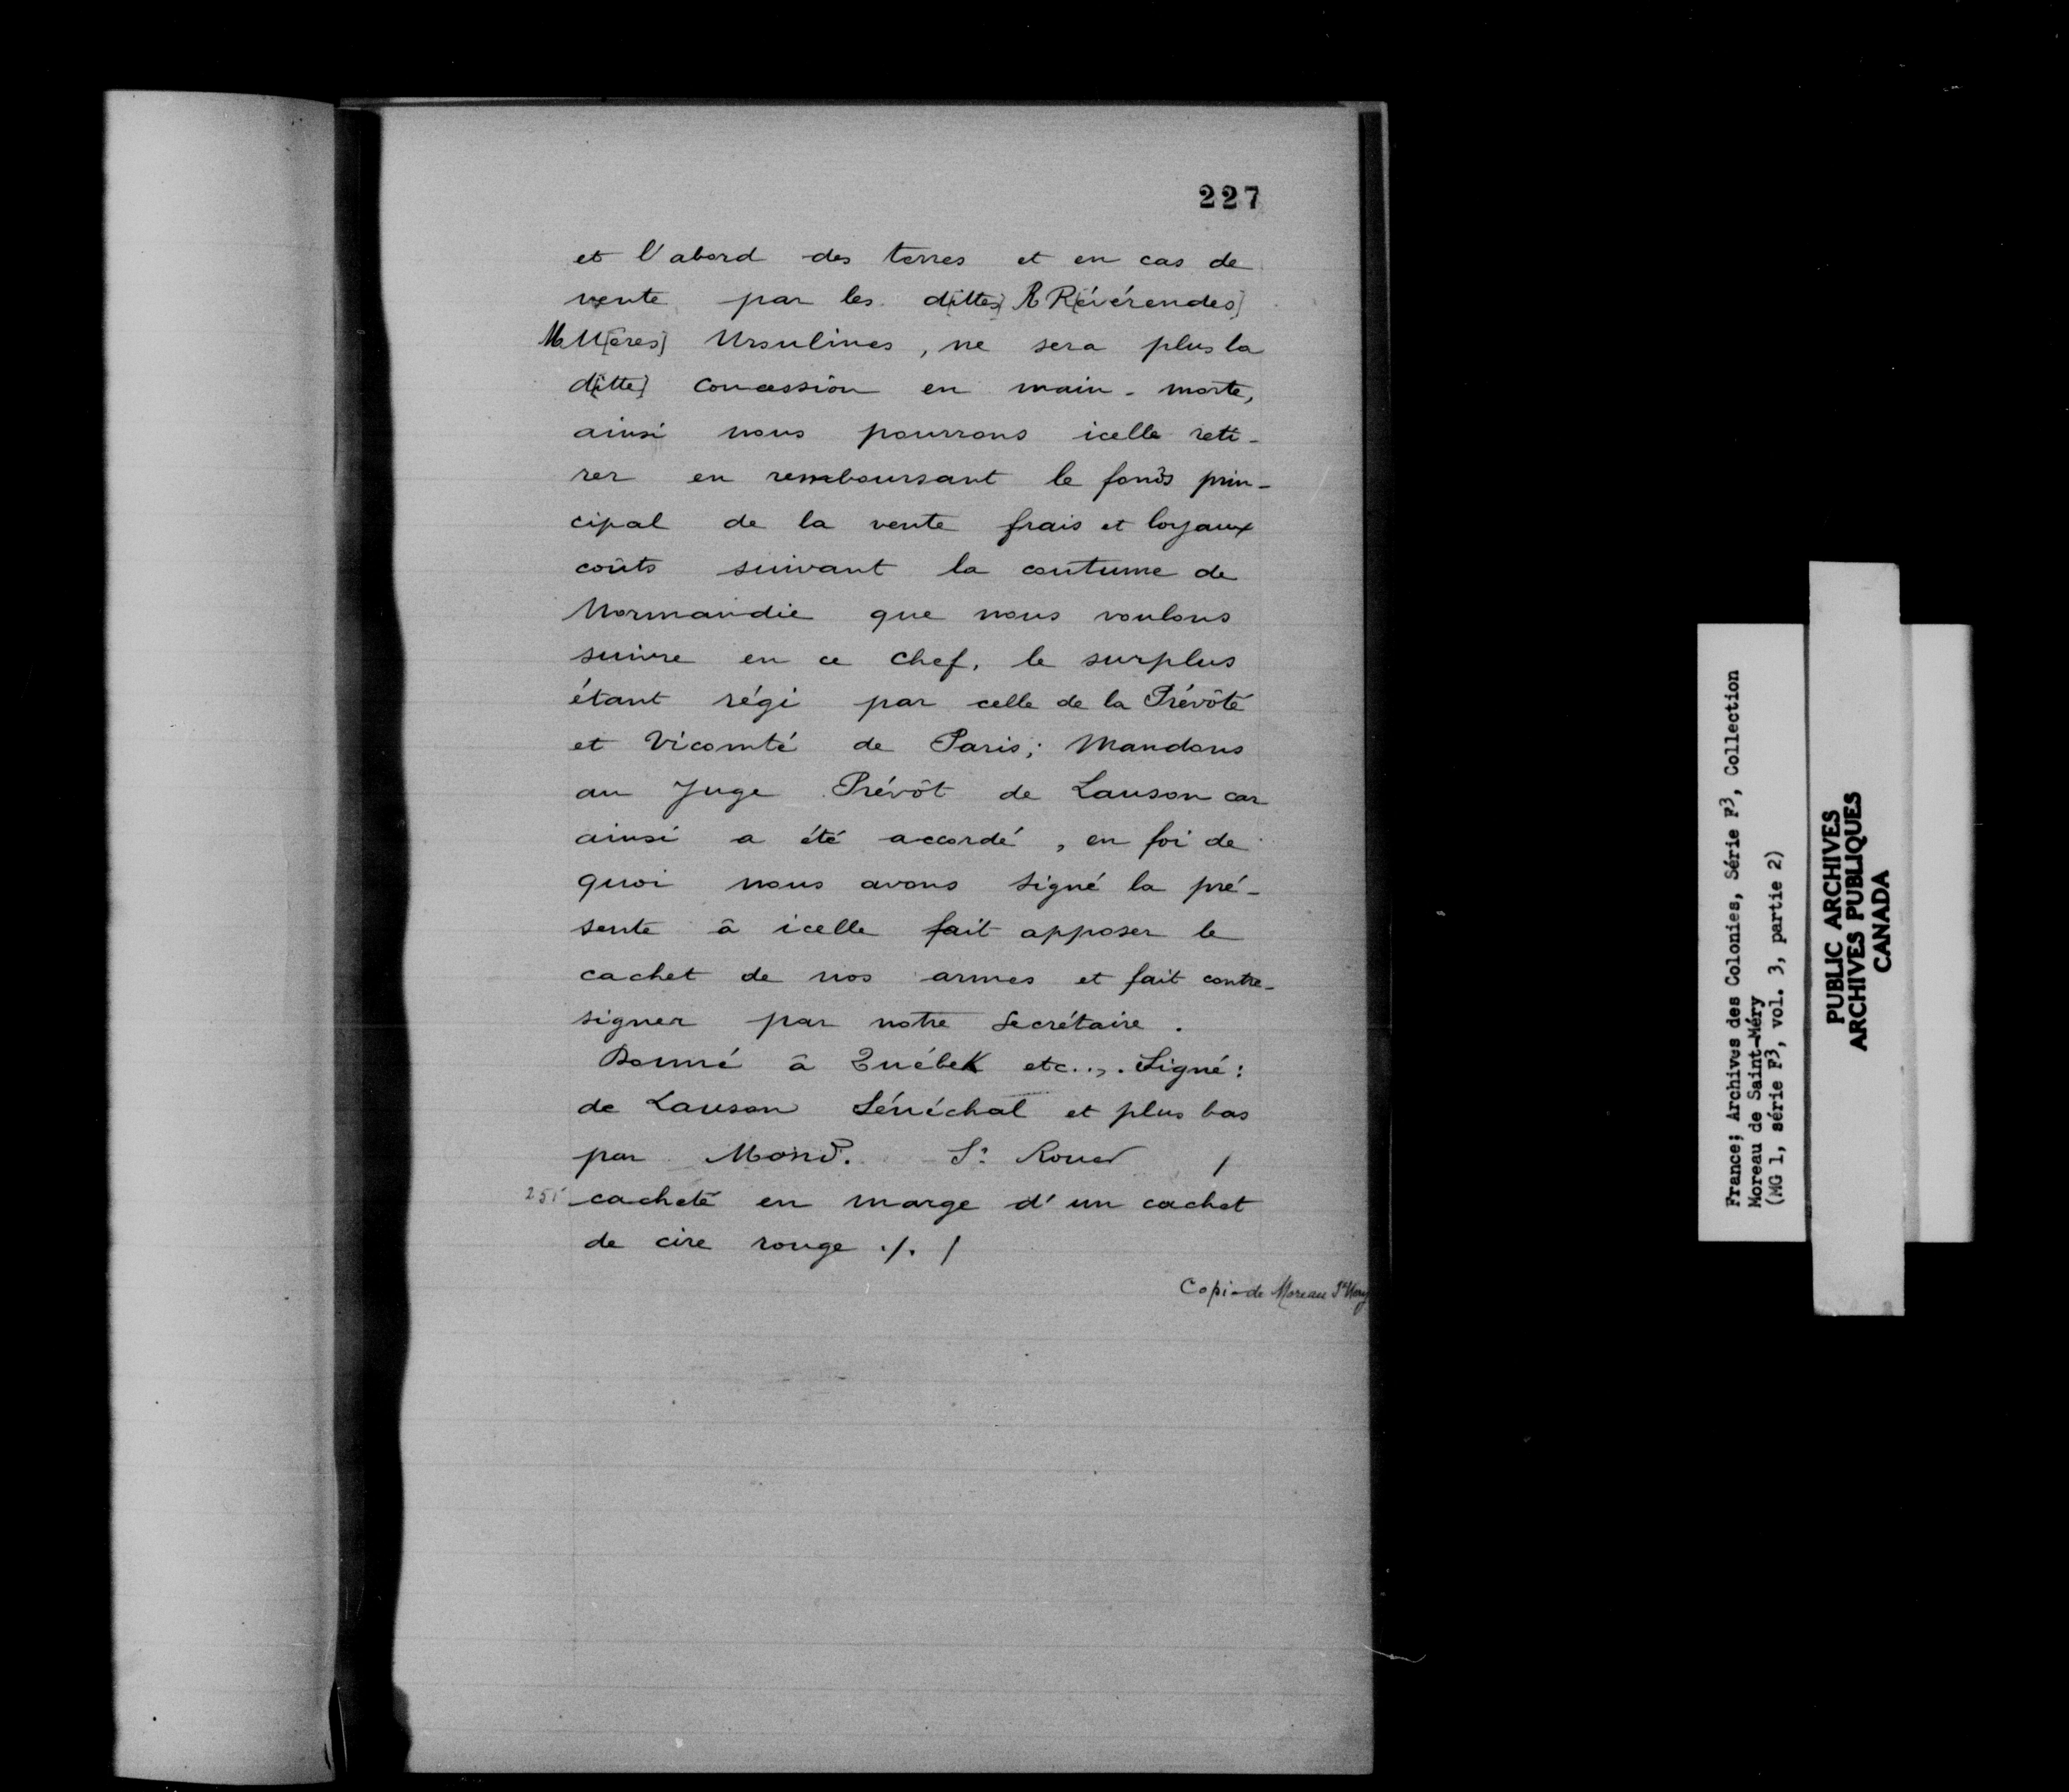 227
et l'abord des terres et en cas de
vente par les d[ittes] R R[évérendes]
M M[ères] Ursulines, ne sera plus la
d[itte] concession en main-morte,
ainsi nous pourrons icelle reti-
rer en remboursant le fonds prin-
cipal de la vente frais et loyaux
coûts suivant la coutume de
Normandie que nous voulons
suivre en ce chef, le surplus
étant régi par celle de la Prévôté
et Vicomté de Paris; Mandons
au Juge Prévôt de Lauson car
ainsi a été accordé, en foi de
quoi nous avons signé la pré-
sente à icelle fait apposer le
cachet de nos armes et fait contre-
signer par notre Secrétaire.
Donné à Québek etc... Signé:
de Lauson Sénéchal et plus bas
par Mond. Sr Rouer /
251 cacheté en marge d'un cachet
de cire rouge ./. /
Copie de Moreau St Mery
France; Archives des Colonies, Série F3, Collection
Moreau de Saint-Méry
(MG 1, série F3, vol. 3, partie 2)
PUBLIC ARCHIVES
ARCHIVES PUBLIQUES
CANADA